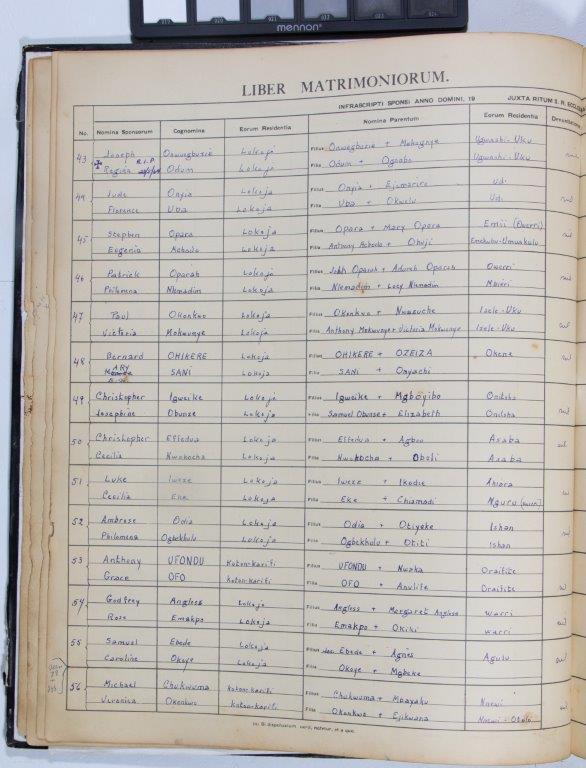 mennon
LIBER MATRIMONIORUM.
INFRASCRIPTI SPONSI ANNO DOMINI, 19 JUXTA RITUM S. R. ECCLESIAE
No. Nomina Sponsorum Cognomina Eorum Residentia Nomina Parentum Eorum Residentia Denuntiationes
43 Joseph Onwugbuzie Lokoja Filius Onwugbuzie + Ugwashi-Uku
Regina R.I.P. Odum Lokoja Filia Odum + Ogbobo Ugwashi-Uku
44 Jude Onyia Lokoja Filius Onyia + Ejimarire Udi
Florence Uba Lokoja Filia Uba + Okwelu Udi
45 Stephen Opara Lokoja Filius Opara + Mary Opara Emii (Owerri)
Eugenia Achodo Lokoja Filia Anthony Achodo + Obuji Emekuku-Umuakulu
46 Patrick Oparah Lokoja Filius John Oparah + Oparah Owerri
Philomena Nkmadim Lokoja Filia Nkmadim + Lucy Nkmadim Mbieri
47 Paul Okonkwo Lokoja Filius Okonkwo + Nwaeuche Issele-Uku
Victoria Mokwunye Lokoja Filia Anthony Mokwunye + Victoria Mokwunye Issele-Uku
48 Bernard OHIKERE Lokoja Filius OHIKERE + OZEIZA Okene
MARY SANI Lokoja Filia SANI + Onyachi
49 Christopher Igweike Lokoja Filius Igweike + Mgboyibo Onitsha
Josephine Obunze Lokoja Filia Samuel Obunze + Elizabeth Onitsha
50 Christopher Effedua Lokoja Filius Effedua + Agboo Asaba
Cecilia Nwokocha Lokoja Filia Nwokocha + Oboli Asaba
51 Luke Iweze Lokoja Filius Iweze + Ikodie Ahiara
Cecilia Eke Lokoja Filia Eke + Chiamadi Nguru (Owerri)
52 Ambrose Odia Lokoja Filius Odia + Otiyeke Ishan
Philomena Ogbekhulu Lokoja Filia Ogbekhulu + Otiti Ishan
53 Anthony UFONDU Koton-Karifi Filius UFONDU + Nwaka Oraifite
Grace OFO Koton-Karifi Filia OFO + Anulife Oraifite
54 Godfrey Angless Lokoja Filius Angless + Margaret Angless Warri
Rose Emakpo Lokoja Filia Emakpo + Okiki Warri
55 Samuel Ebede Lokoja Filius Ebede + Agnes Agulu
Caroline Okoye Lokoja Filia Okoye + Mgboke
56 Michael Chukwuma Koton-Karifi Filius Chukwuma + Mbayaku Nnewi
Veronica Okonkwo Koton-Karifi Filia Okonkwo + Ejikwana Nnewi - Otolo